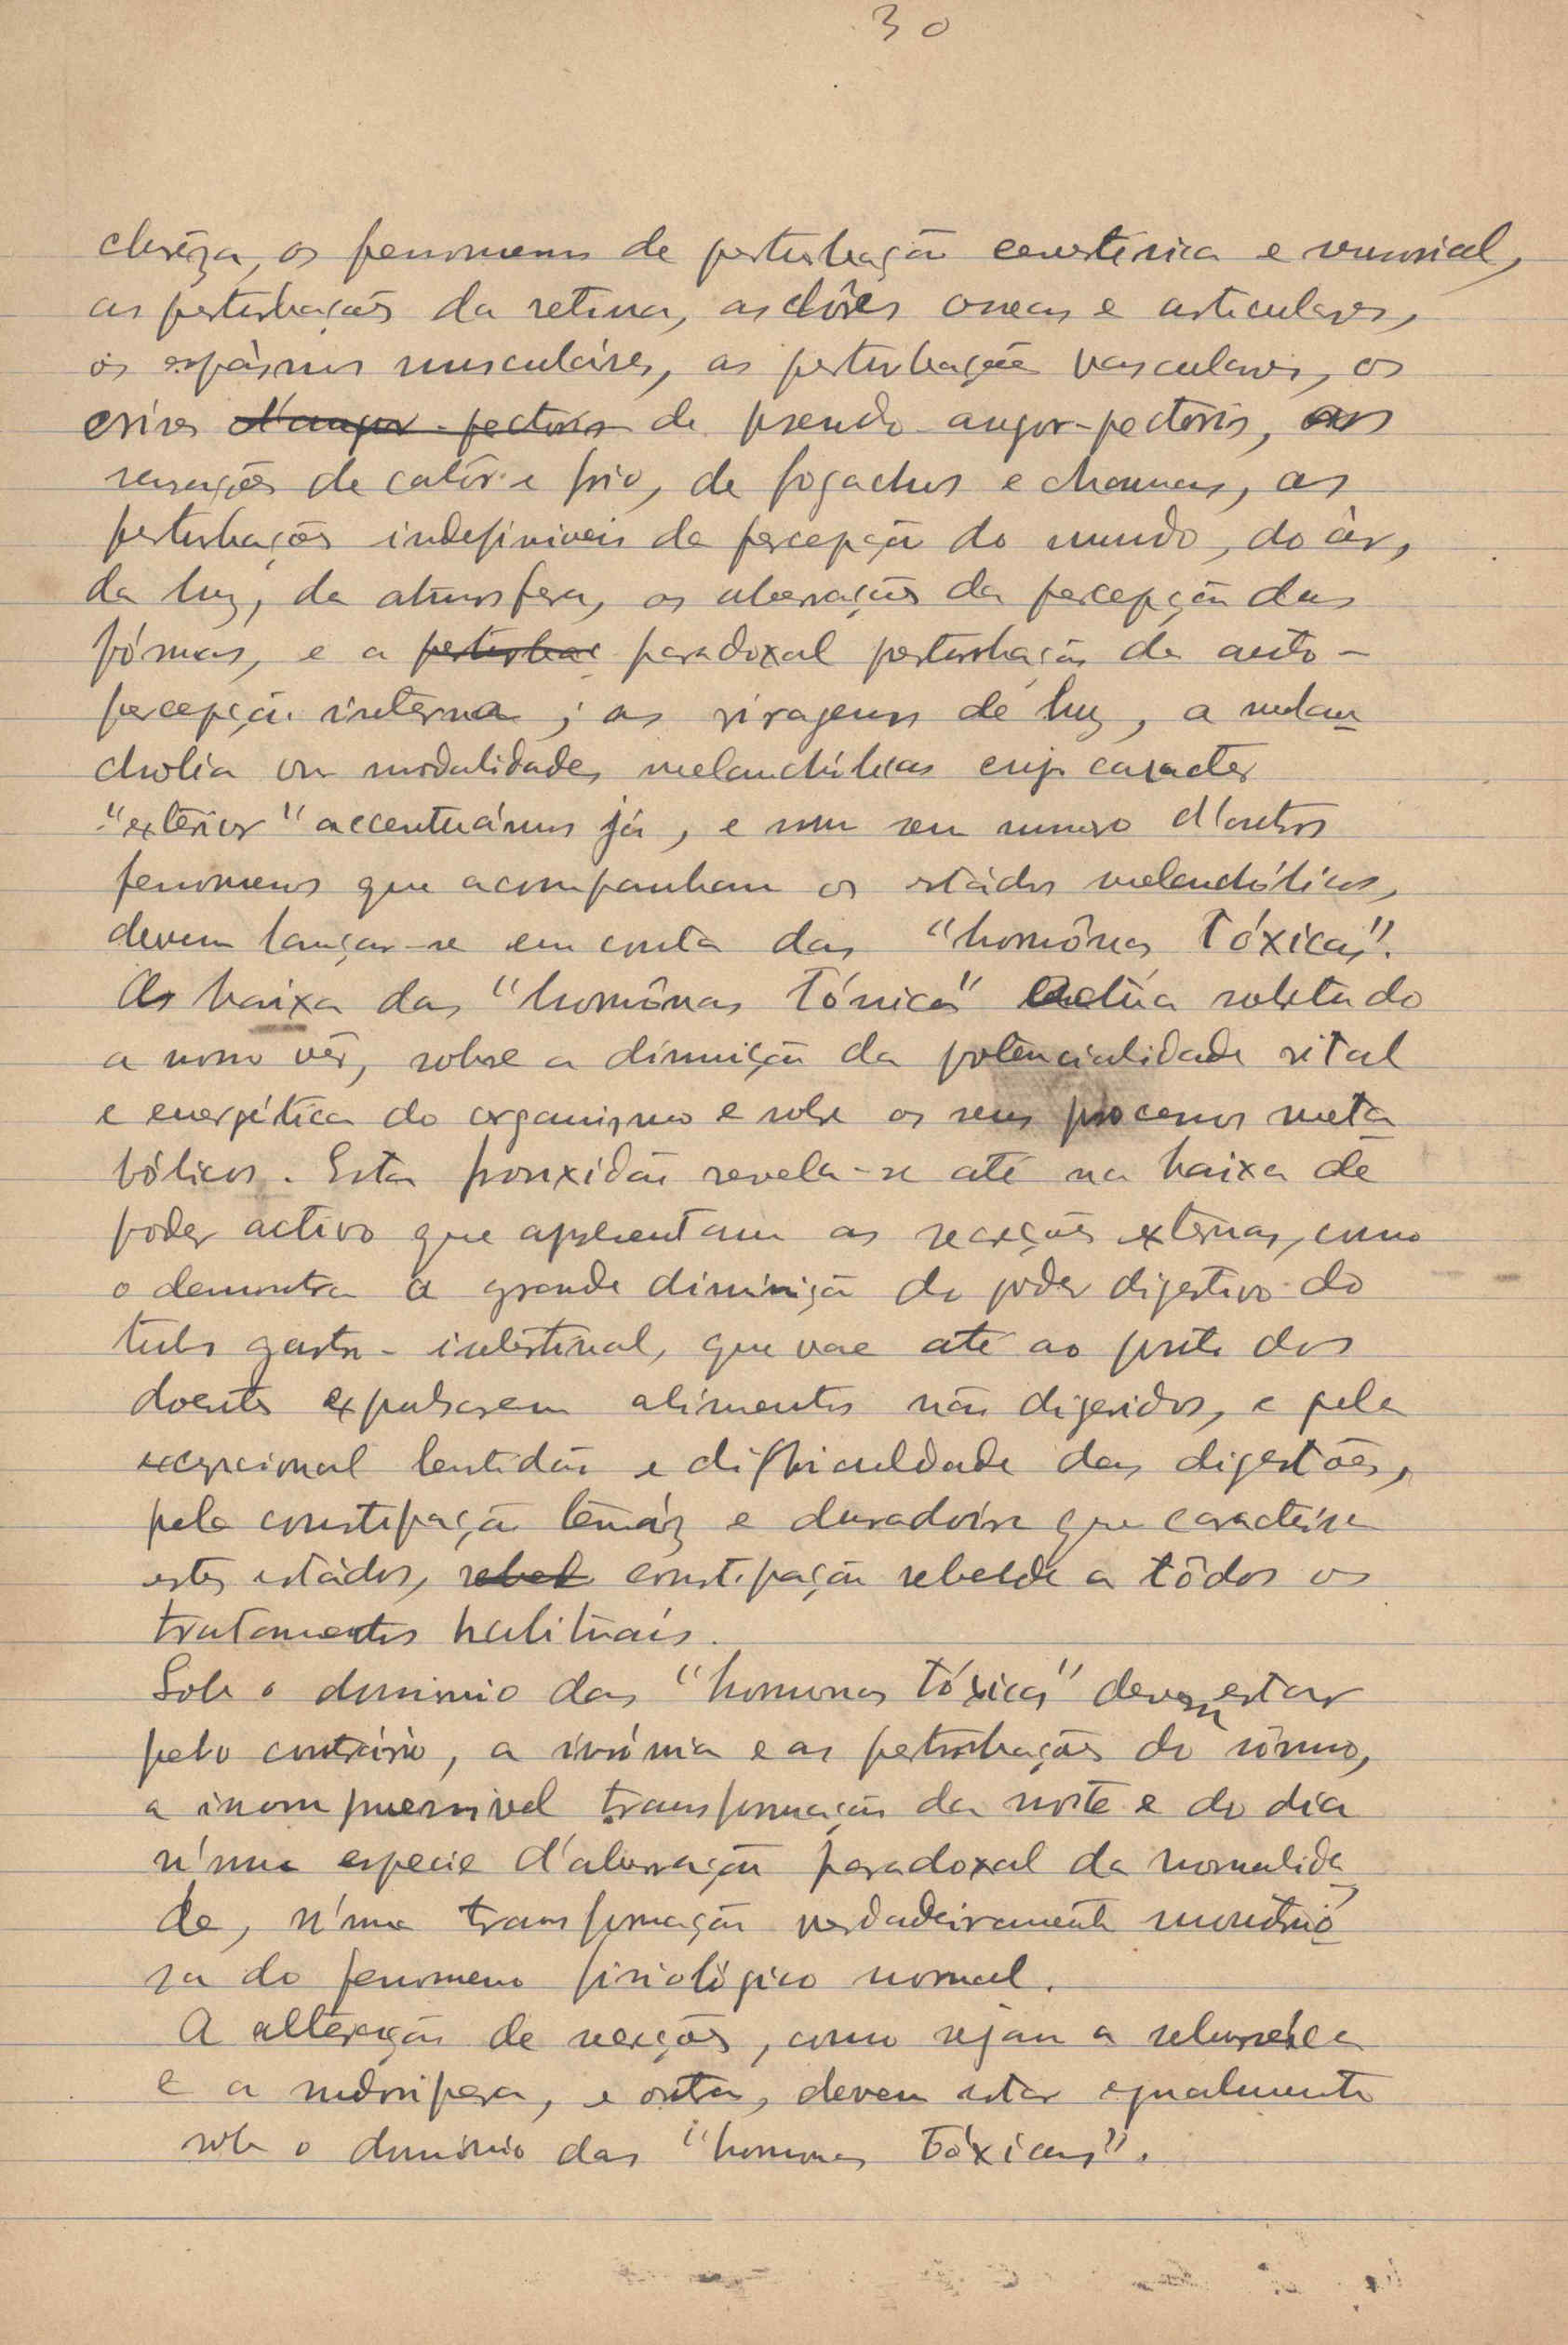 30
cleréza, os fenomenos de perturbação cenestésica e sensorial,
as perturbações da retina, as dôres osseas e articulares,
os espásmos musculáres, as perturbações vasculares, as
crises d'angor-pectoris de pseudo angor-pectoris, as
sensações de calôr e frio, de fogachos e chamas, as
perturbações indefiniveis da percepção do mundo, do ár,
da luz, da atmosfera, as aberrações da percepção das
fórmas, e a perturbaç paradoxal perturbação da auto-
percepção interna; as viragens de luz, a melan
cholia ou modalidades melanchólicas cujo caracter
"exterior" accentuámos já, e um sem numero d'outros
fenomenos que acompanham os estádos melanchólicos,
devem lançar-se em conta das "hormônas tóxicas".
A baixa das "hormônas tónicas" actúa sobretudo
a nosso vêr, sobre a diminuição da potencialidade vital
e energética do organismo e sobre os seus processos meta
bólicos. Esta frouxidão revela-se até na baixa de
poder activo que apresentam as secreções externas, como
o demonstra a grande diminuição do poder digestivo do
tubo gastro-intestinal, que vae até ao ponto dos
doentes expulsarem alimentos não digeridos, e pela
excepcional lentidão e difficuldade das digestões,
pela constipação tenáz e duradoira que caracterisa
estes estádos, rebel constipação rebelde a tôdos os
tratamentos habituaís.
Sob o dominio das "hormonas tóxicas" devem estar
pelo contrário, a insónia e as perturbações do sômno,
a incompreensivel transformação da noite e do dia
n'uma especie d'aberração paradoxal da normalida
de, n'uma transformação verdadeiramente monstruó
sa do fenomeno fisiológico normal.
A alteração de secreções, como sejam a seborreica
e a sudoripara, e outras, devem estar egualmente
sob o dominio das "hormonas tóxicas".